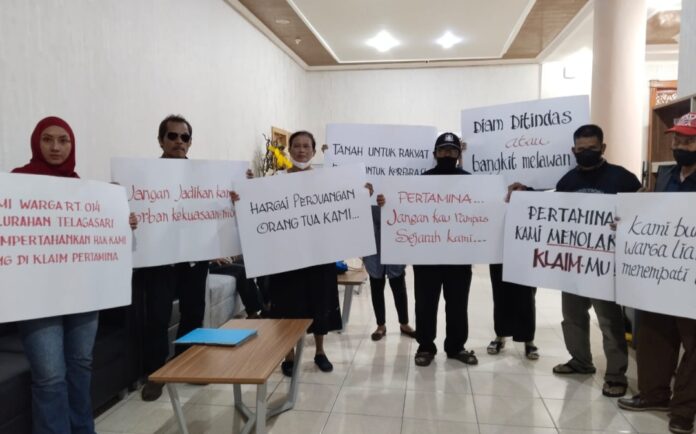 MI WARGA RT. 014
LURAHAN TELAGASARI
MPERTAHANKAN HAK KAMI
NG DI KLAIM PERTAMINA
Jangan Jadikan kam
orban kekuasaan-mu
HARGAI PERJUANGAN
ORANG TUA KAMI...
TANAH UNTUK RAKYAT
UNTUK KORPORA
PERTAMINA...
Jangan kau Rampas
Sejarah kami...
DIAM DITINDAS
atau
bangkit melawan
PERTAMINA
KAMI MENOLAK
KLAIM-MU
Kami bu
warga lia
menempati